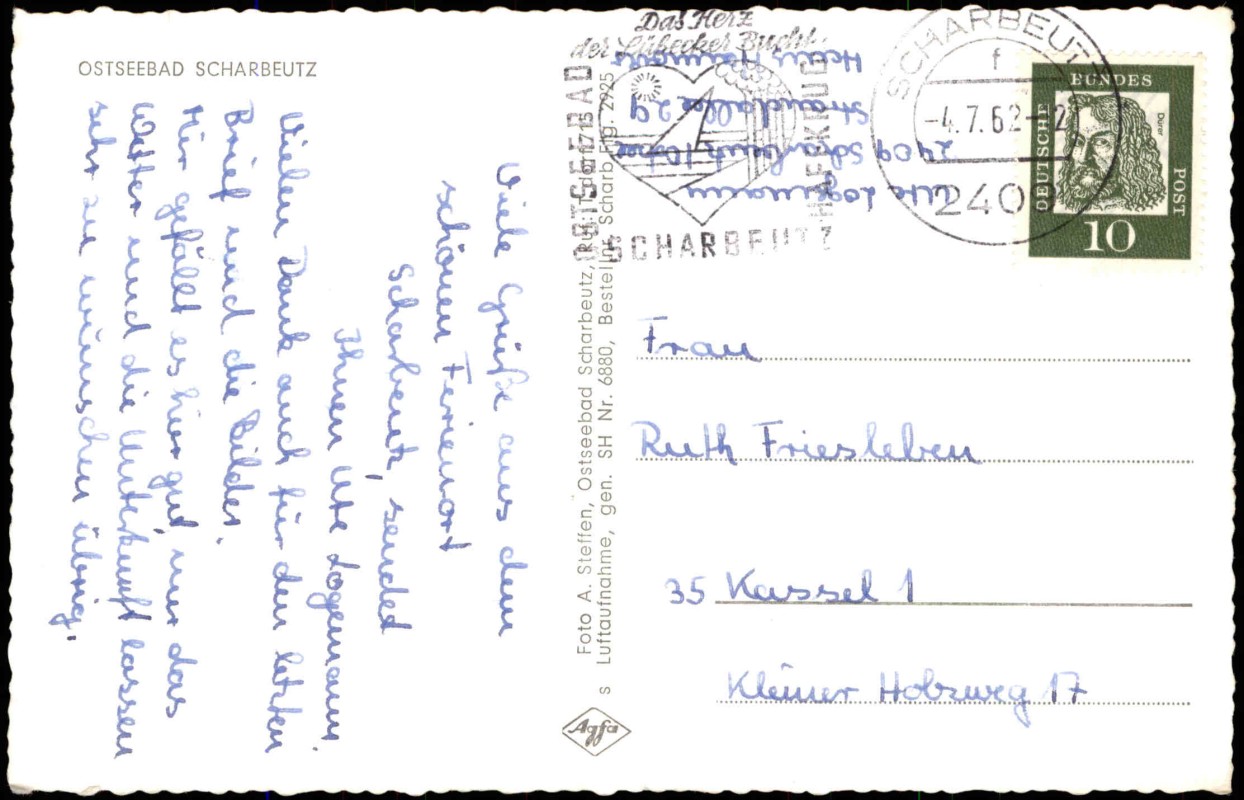 OSTSEEBAD SCHARBEUTZ
Viele Grüße aus dem
schönen Ferienort
Scharbeutz, sendet
Ihnen Ute Logemann
Vielen Dank auch für den letzten
Brief und die Bilder.
Mir gefällt es hier gut, nur das
Wetter und die Unterkunft lassen
sehr zu wünschen übrig.
Foto A. Steffen, Ostseebad Scharbeutz,
s Luftaufnahme, gen. SH Nr. 6880, Bestellnr. Scharb. Flug. 2925
Agfa
Das Herz
der Lübecker Bucht
OSTSEEBAD
SCHARBEUTZ
HAFFKRUG
SCHARBEUTZ
f
-4.7.62-12
2409
Ute Logemann
2409 Scharbeutz
Strandallee 29
DEUTSCHE BUNDES POST
Dürer
10
Frau
Ruth Friesleben
35 Kassel 1
Kleiner Holzweg 17